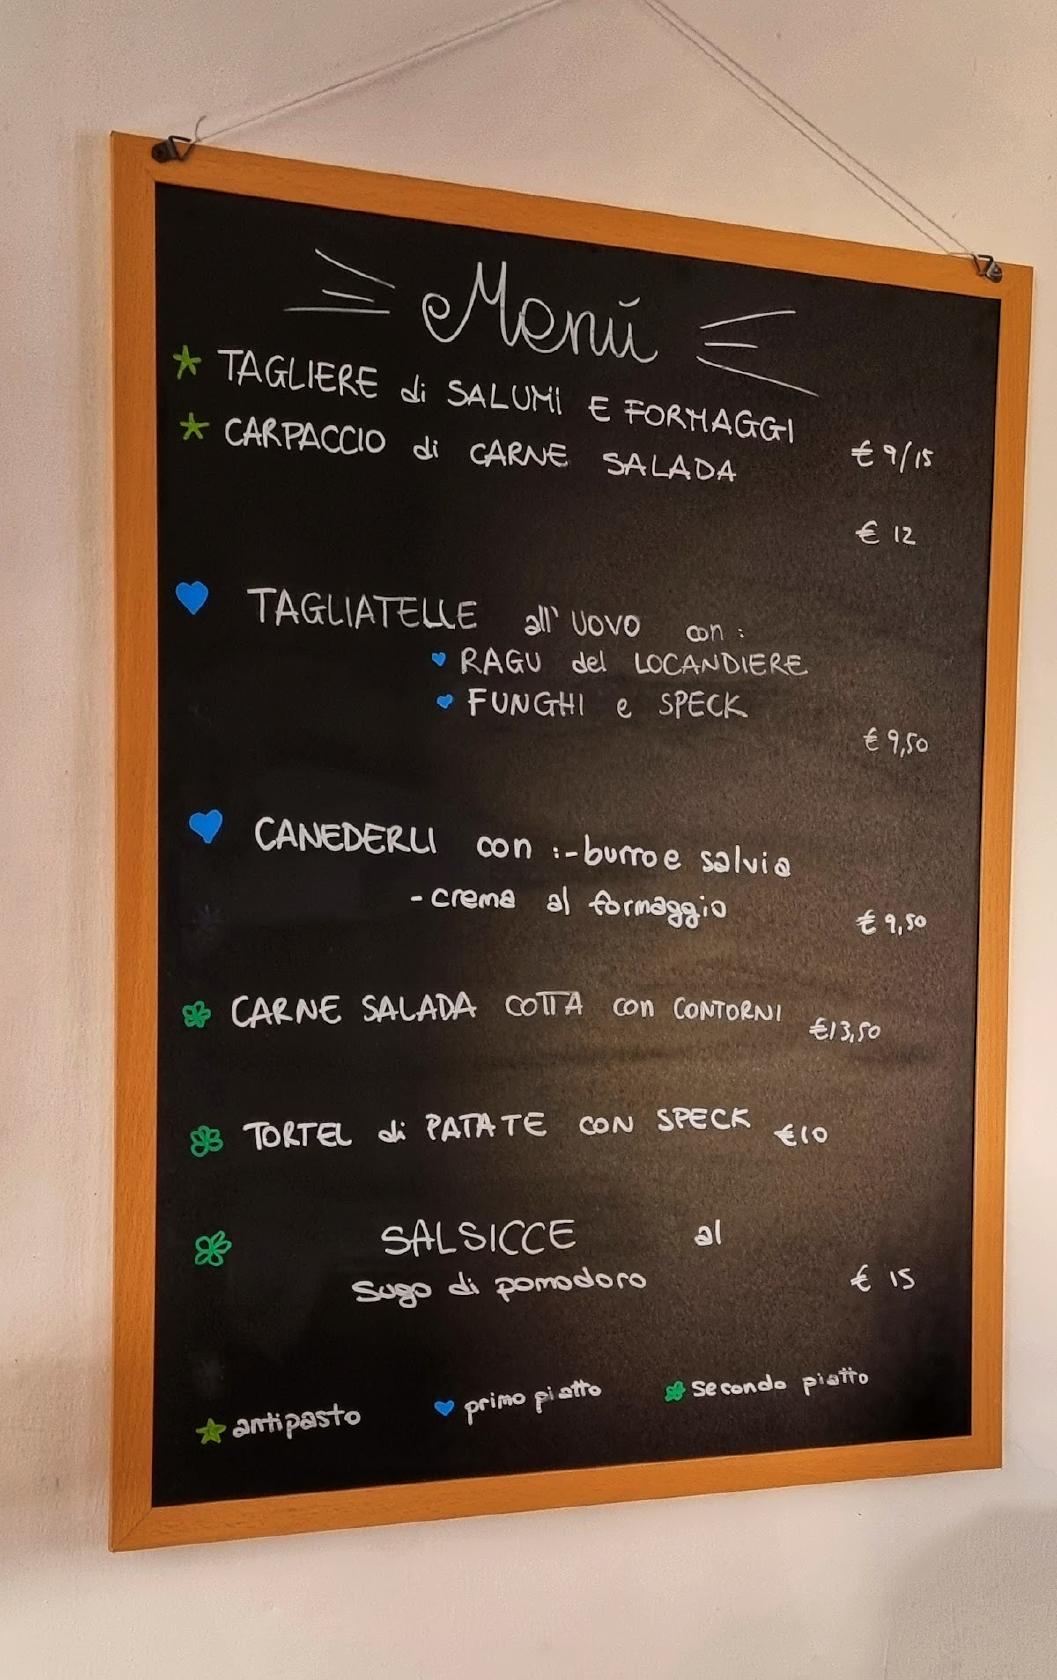 Menú
TAGLIERE di SALUMI E FORMAGGI € 9/15
CARPACCIO di CARNE SALADA
€ 12
TAGLIATELLE all' UOVO con :
RAGU del LOCANDIERE
FUNGHI e SPECK
€ 9,50
CANEDERLI con :- burro e salvia
- crema al formaggio € 9,50
CARNE SALADA COTTA con CONTORNI €13,50
TORTEL di PATATE CON SPECK €10
SALSICCE al
Sugo di pomodoro € 15
antipasto primo piatto secondo piatto